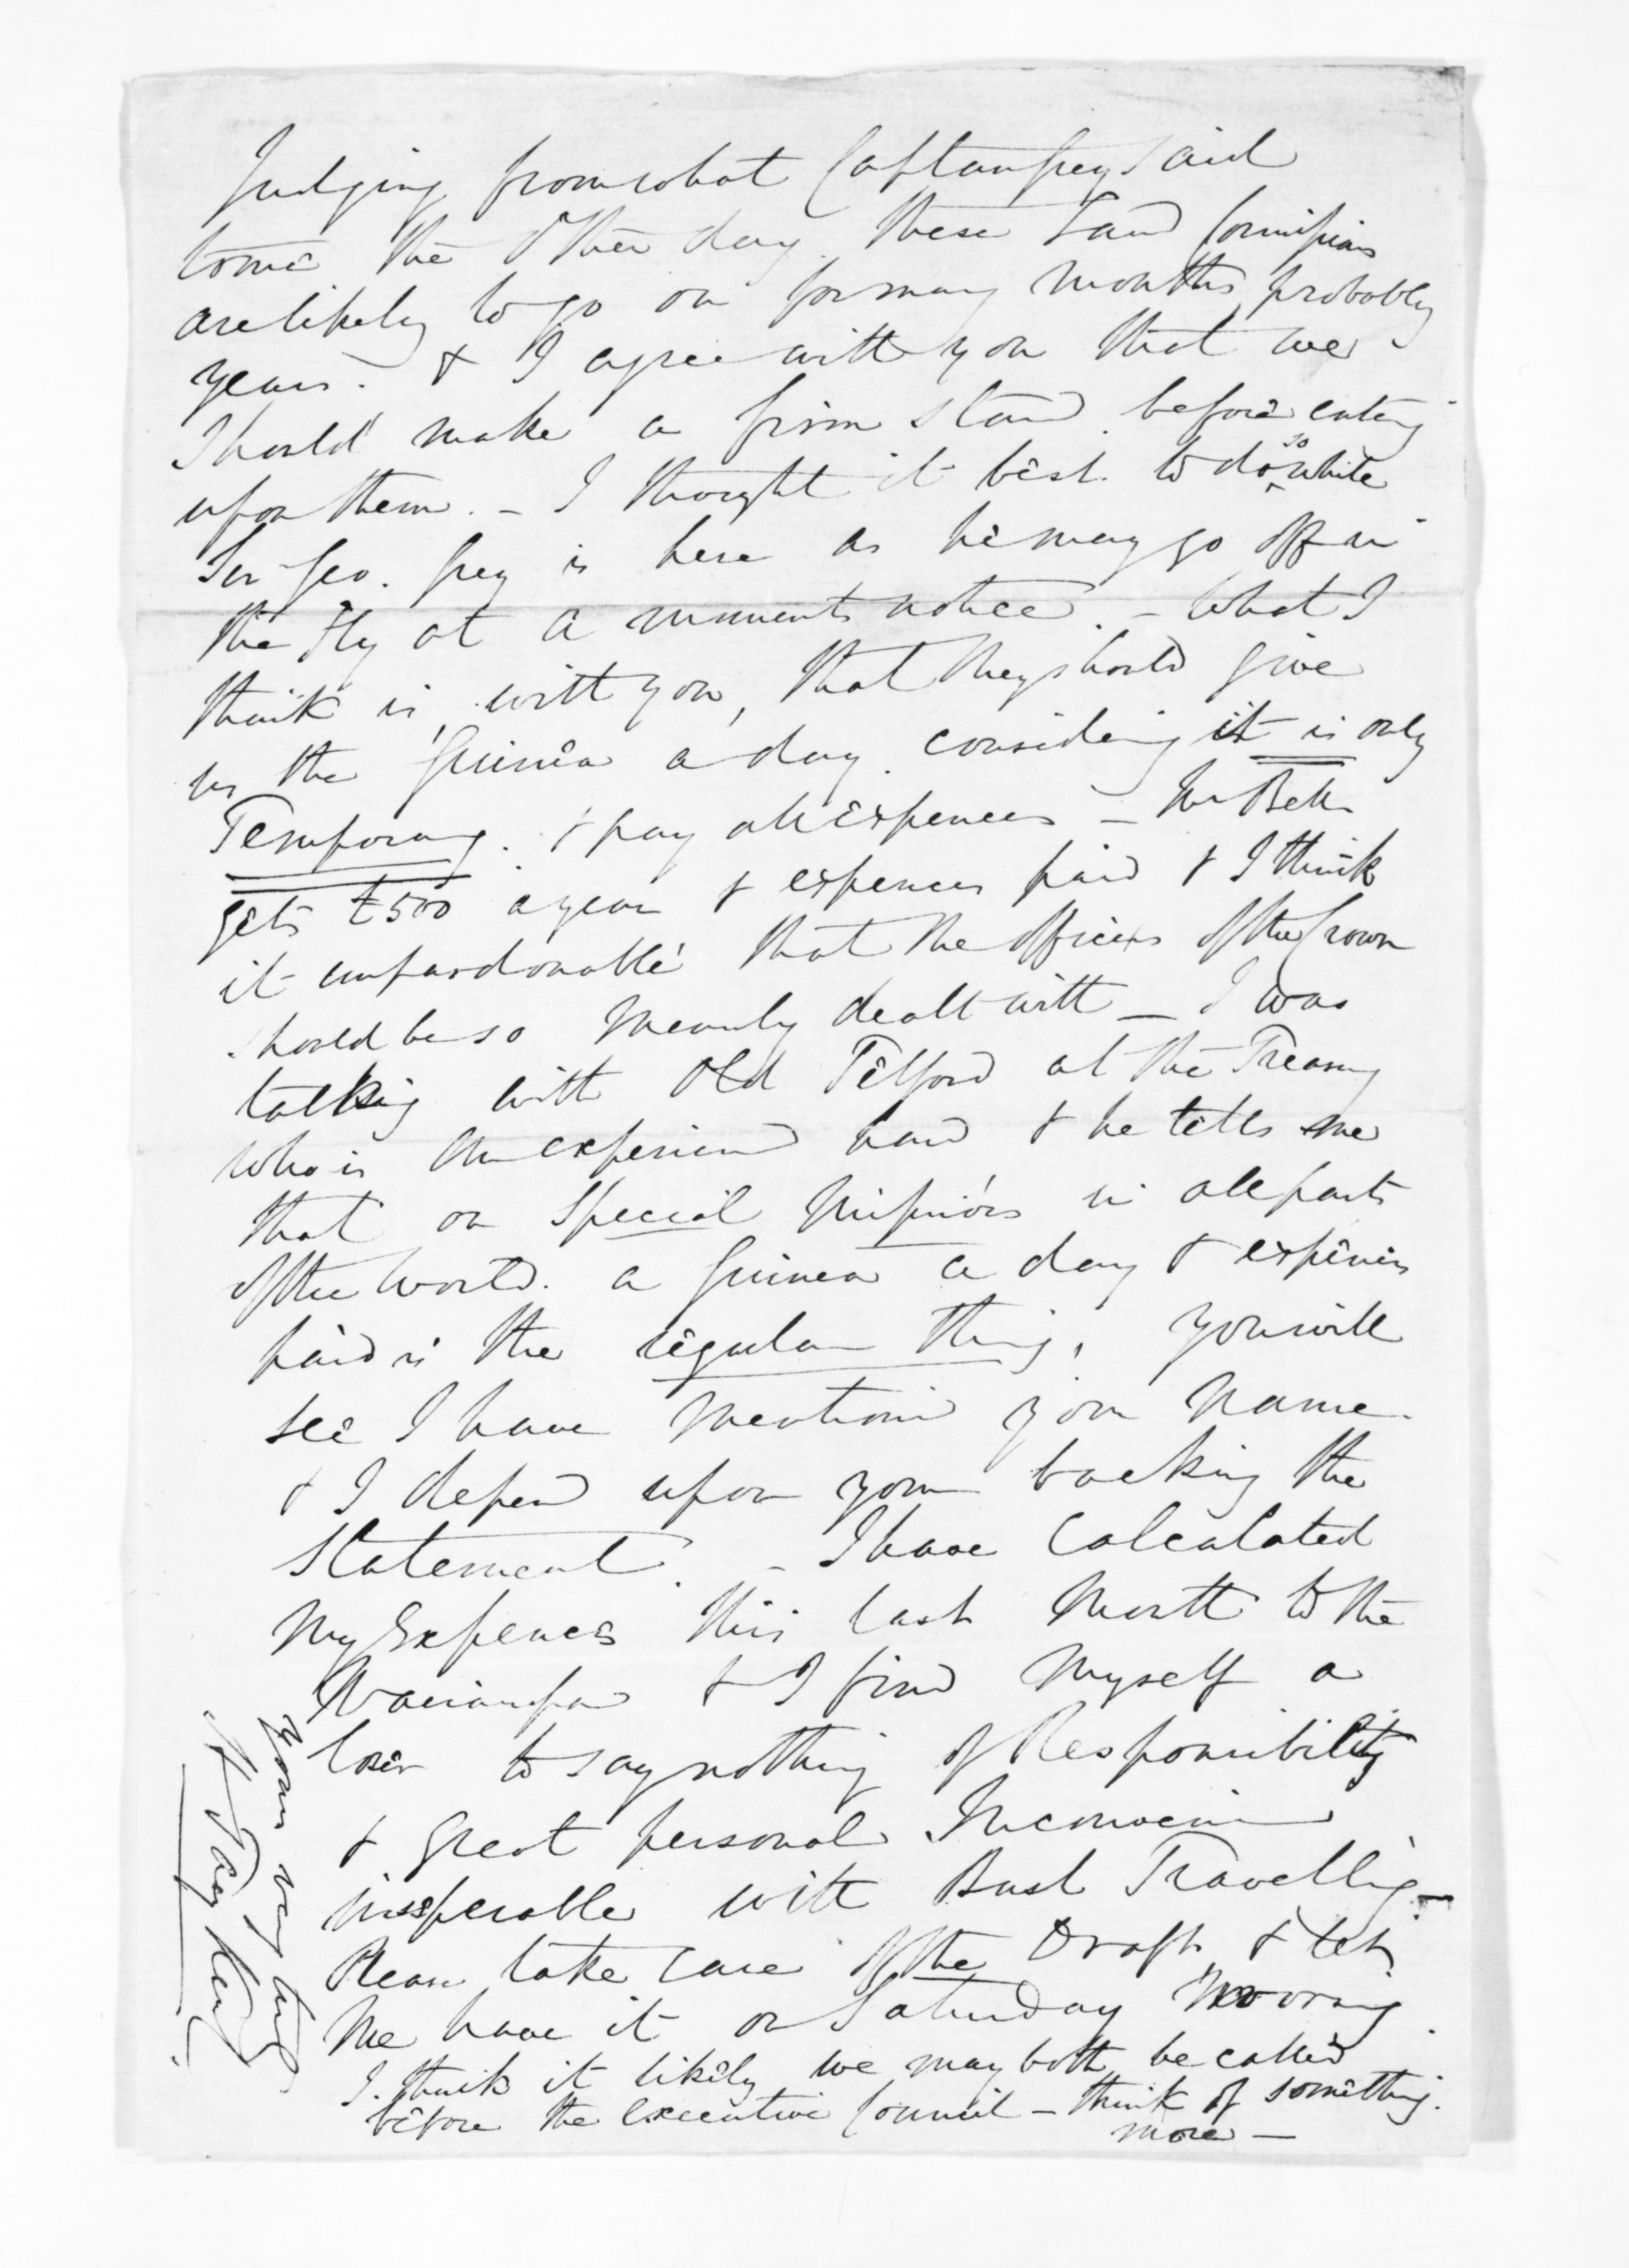 Judging from what Captain Grey said
to me the other day these Land Commissions
are likely to go on for many months, probably
years. & I agree with you that we
should make a firm stand before entering
upon them. - I thought it best to do so while
Sir Geo. Grey is here as he may go off in
the Fly at a moments notice. - What I
think is, with you, that they should give
us the Guinea a day considering it is only
Temporary. & pay all expences - Mr Bell
gets £500 a year & expences paid & I think
it unpardonable that the officers of the Crown
should be so meanly dealt with - I was
talking with Old Telford at the Treasury
who is an experienced hand & he tells me
that on Special Missions in all parts
of the World. a Guinea a day & expences
paid is the regular thing, you will
see I have mentioned your name.
& I depend upon your backing the
Statement. - I have Calculated
My Expences this last Month to the
Wairarapa & I find Myself a
loser to say nothing of Responsibility
& Great personal Inconvenience
inseperable with Bush Travelling -
Please take care of the Draft & let
Me have it on Saturday Morning.
I think it likely we may both be called
before the executive Council - think of something.
more -
Yours very truly